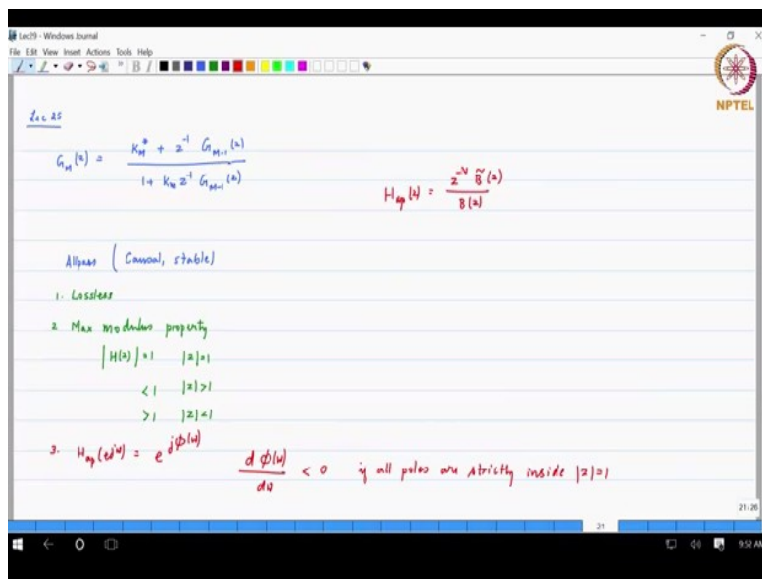 Lec19 - Windows Journal
File Edit View Insert Actions Tools Help
NPTEL
Lec 25
G_M(z) = (K_M^* + z^-1 G_M-1(z)) / (1 + K_m z^-1 G_M-1(z))
H_ap(z) = z^-N B̃(z) / B(z)
Allpass (Causal, stable)
1. Lossless
2 Max modulus property
|H(z)| = 1 |z|=1
< 1 |z|>1
> 1 |z|<1
3. H_ap(e^jω) = e^jϕ(ω)
dϕ(ω)/dω < 0 if all poles are strictly inside |z|=1
21:26
21
9:52 AM